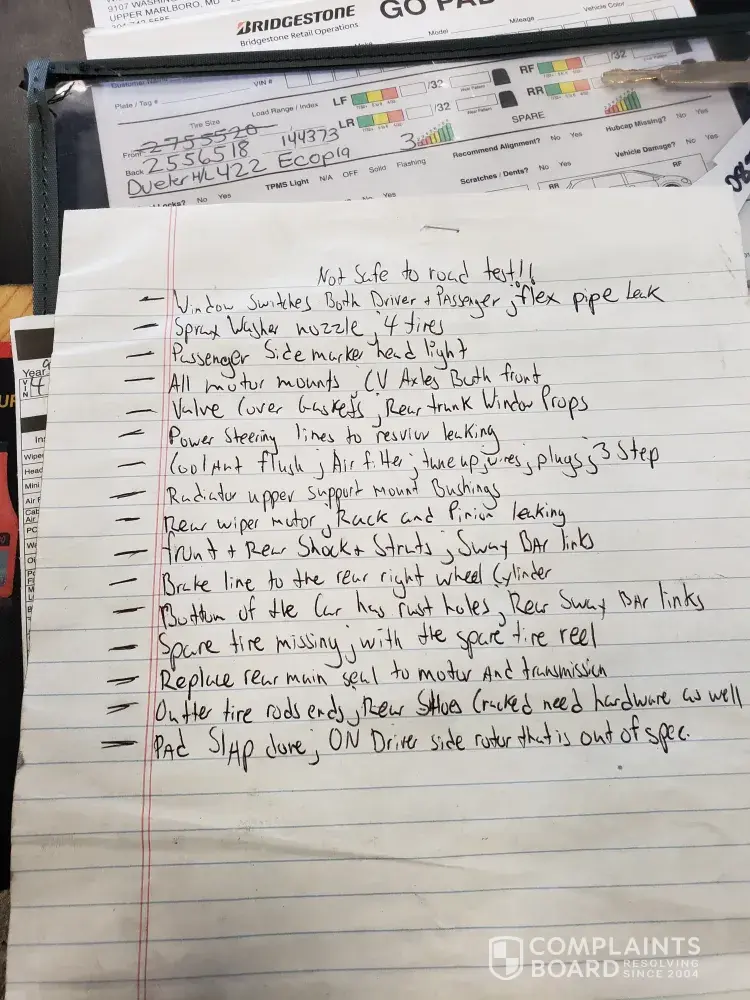 9107 WASHING
UPPER MARLBORO, MD
BRIDGESTONE
Bridgestone Retail Operations
GO PAD
Model
Mileage
Vehicle Color
VIN #
Plate / Tag #
Tire Size
Load Range / Index
LF /32
RF /32
LR /32
RR
SPARE
From 2755520 144373
Back 2556518 Ecopia
Dueler H/L 422
3
Recommend Alignment? No Yes
Hubcap Missing? No Yes
Locks? No Yes
TPMS Light N/A OFF Solid Flashing
Scratches / Dents? No Yes
Vehicle Damage? No Yes
RR
RF
Not Safe to road test!!
— Window Switches Both Driver + Passenger ; flex pipe leak
— Spray Washer nozzle ; 4 tires
— Passenger Side marker head light
— All motor mounts ; CV Axles Both front
— Valve Cover Gaskets ; Rear trunk Window Props
— Power Steering lines to resviur leaking
— Coolant flush ; Air filter ; tune up ; wires ; plugs ; 3 step
— Radiator upper support mount Bushings
— Rear wiper motor ; Rack and Pinion leaking
— front + Rear Shock + Struts ; Sway BAr links
— Brake line to the rear right wheel Cylinder
— Buttom of the Car has rust holes ; Rear Sway BAr links
— Spare tire missing ; with the spare tire reel
— Replace rear main seal to motor And transmission
— Outter tire rods ends ; Rear Shoes Cracked need hardware as well
— PAd SlAp done ; ON Driver side rotor that is out of spec.
Year
VIN
4
Wipe
Head
Mini
Air F
PC
COMPLAINTS
BOARD RESOLVING SINCE 2004